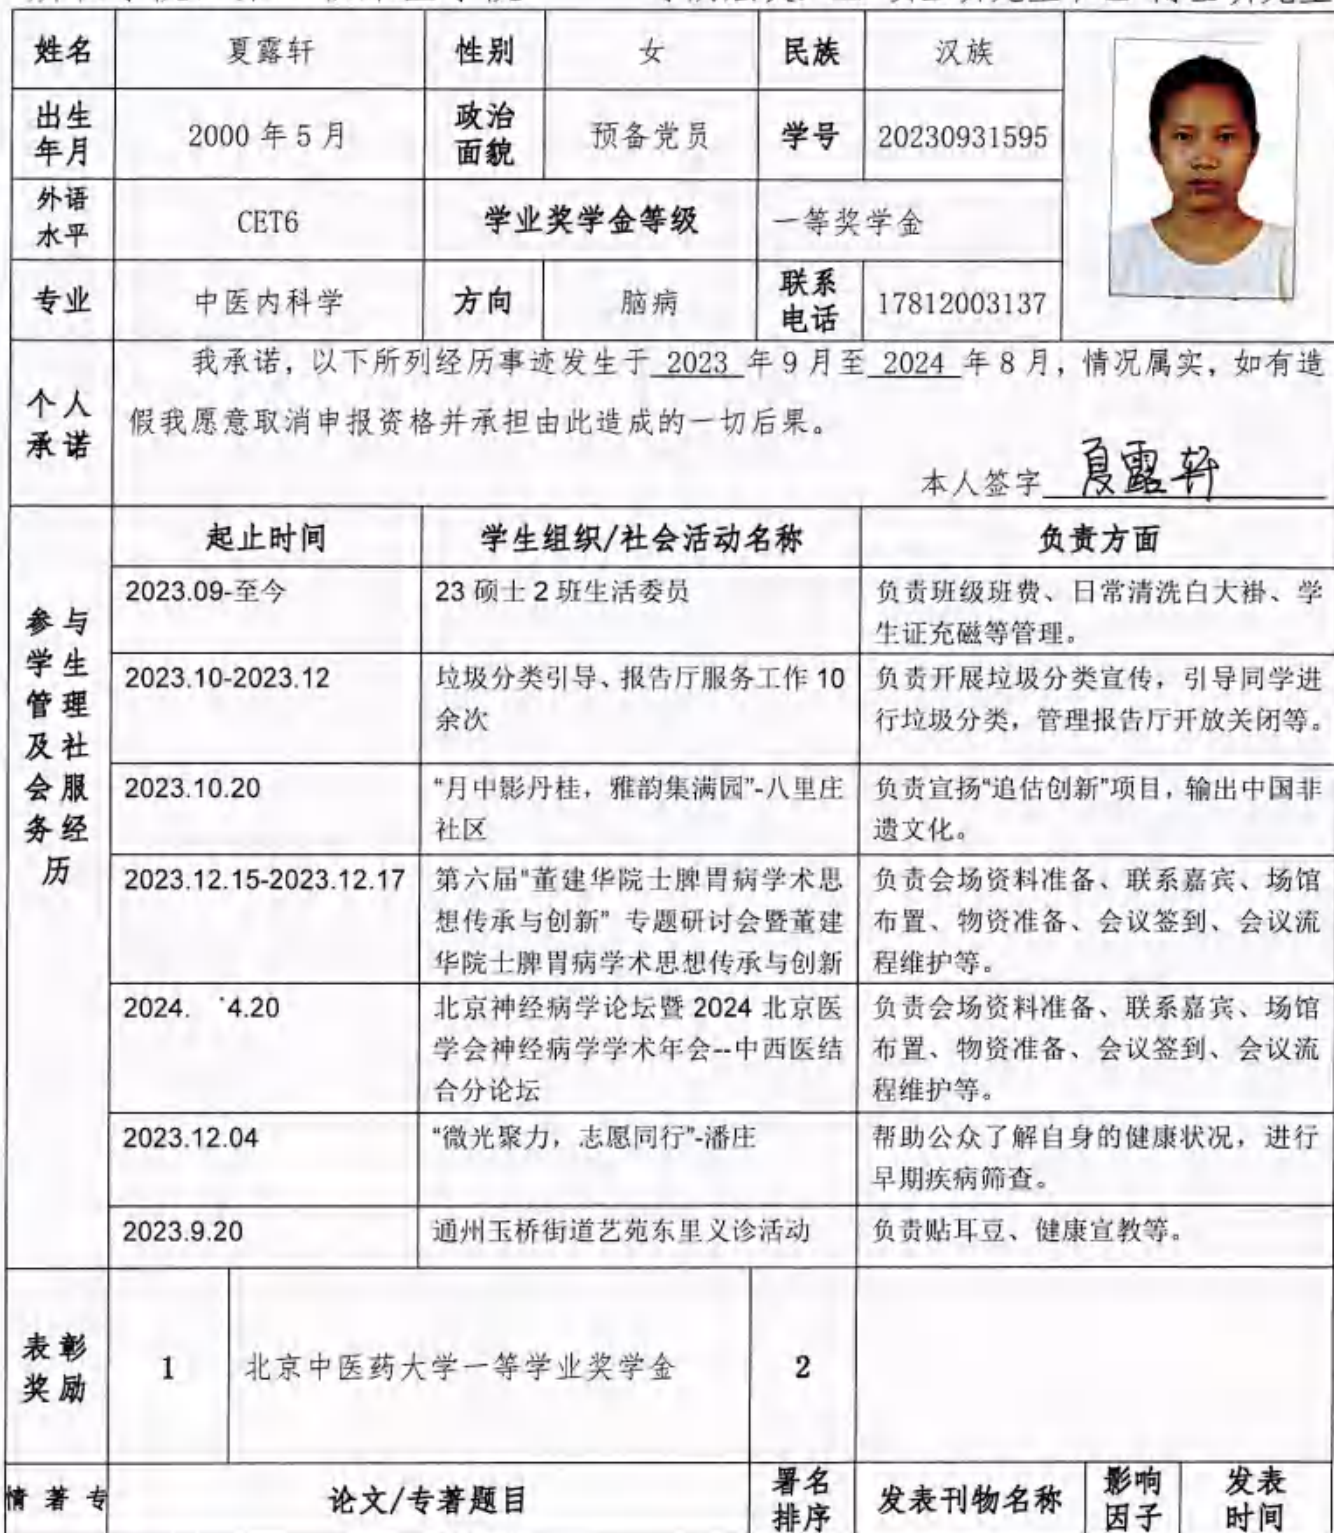 姓名 夏露轩 性别 女 民族 汉族
出生年月 2000年5月 政治面貌 预备党员 学号 20230931595
外语水平 CET6 学业奖学金等级 一等奖学金
专业 中医内科学 方向 脑病 联系电话 17812003137
个人承诺
我承诺，以下所列经历事迹发生于 2023 年9月至 2024 年8月，情况属实，如有造
假我愿意取消申报资格并承担由此造成的一切后果。
本人签字 夏露轩
参与学生管理及社会服务经历
起止时间 学生组织/社会活动名称 负责方面
2023.09-至今 23硕士2班生活委员 负责班级班费、日常清洗白大褂、学
生证充磁等管理。
2023.10-2023.12 垃圾分类引导、报告厅服务工作10 负责开展垃圾分类宣传，引导同学进
余次 行垃圾分类，管理报告厅开放关闭等。
2023.10.20 “月中影丹桂，雅韵集满园”-八里庄 负责宣扬“追估创新”项目，输出中国非
社区 遗文化。
2023.12.15-2023.12.17 第六届“董建华院士脾胃病学术思 负责会场资料准备、联系嘉宾、场馆
想传承与创新” 专题研讨会暨董建 布置、物资准备、会议签到、会议流
华院士脾胃病学术思想传承与创新 程维护等。
2024. 4.20 北京神经病学论坛暨2024北京医 负责会场资料准备、联系嘉宾、场馆
学会神经病学学术年会--中西医结 布置、物资准备、会议签到、会议流
合分论坛 程维护等。
2023.12.04 “微光聚力，志愿同行”-潘庄 帮助公众了解自身的健康状况，进行
早期疾病筛查。
2023.9.20 通州玉桥街道艺苑东里义诊活动 负责贴耳豆、健康宣教等。
表彰奖励 1 北京中医药大学一等学业奖学金 2
情 著 专 论文/专著题目 署名排序 发表刊物名称 影响因子 发表时间